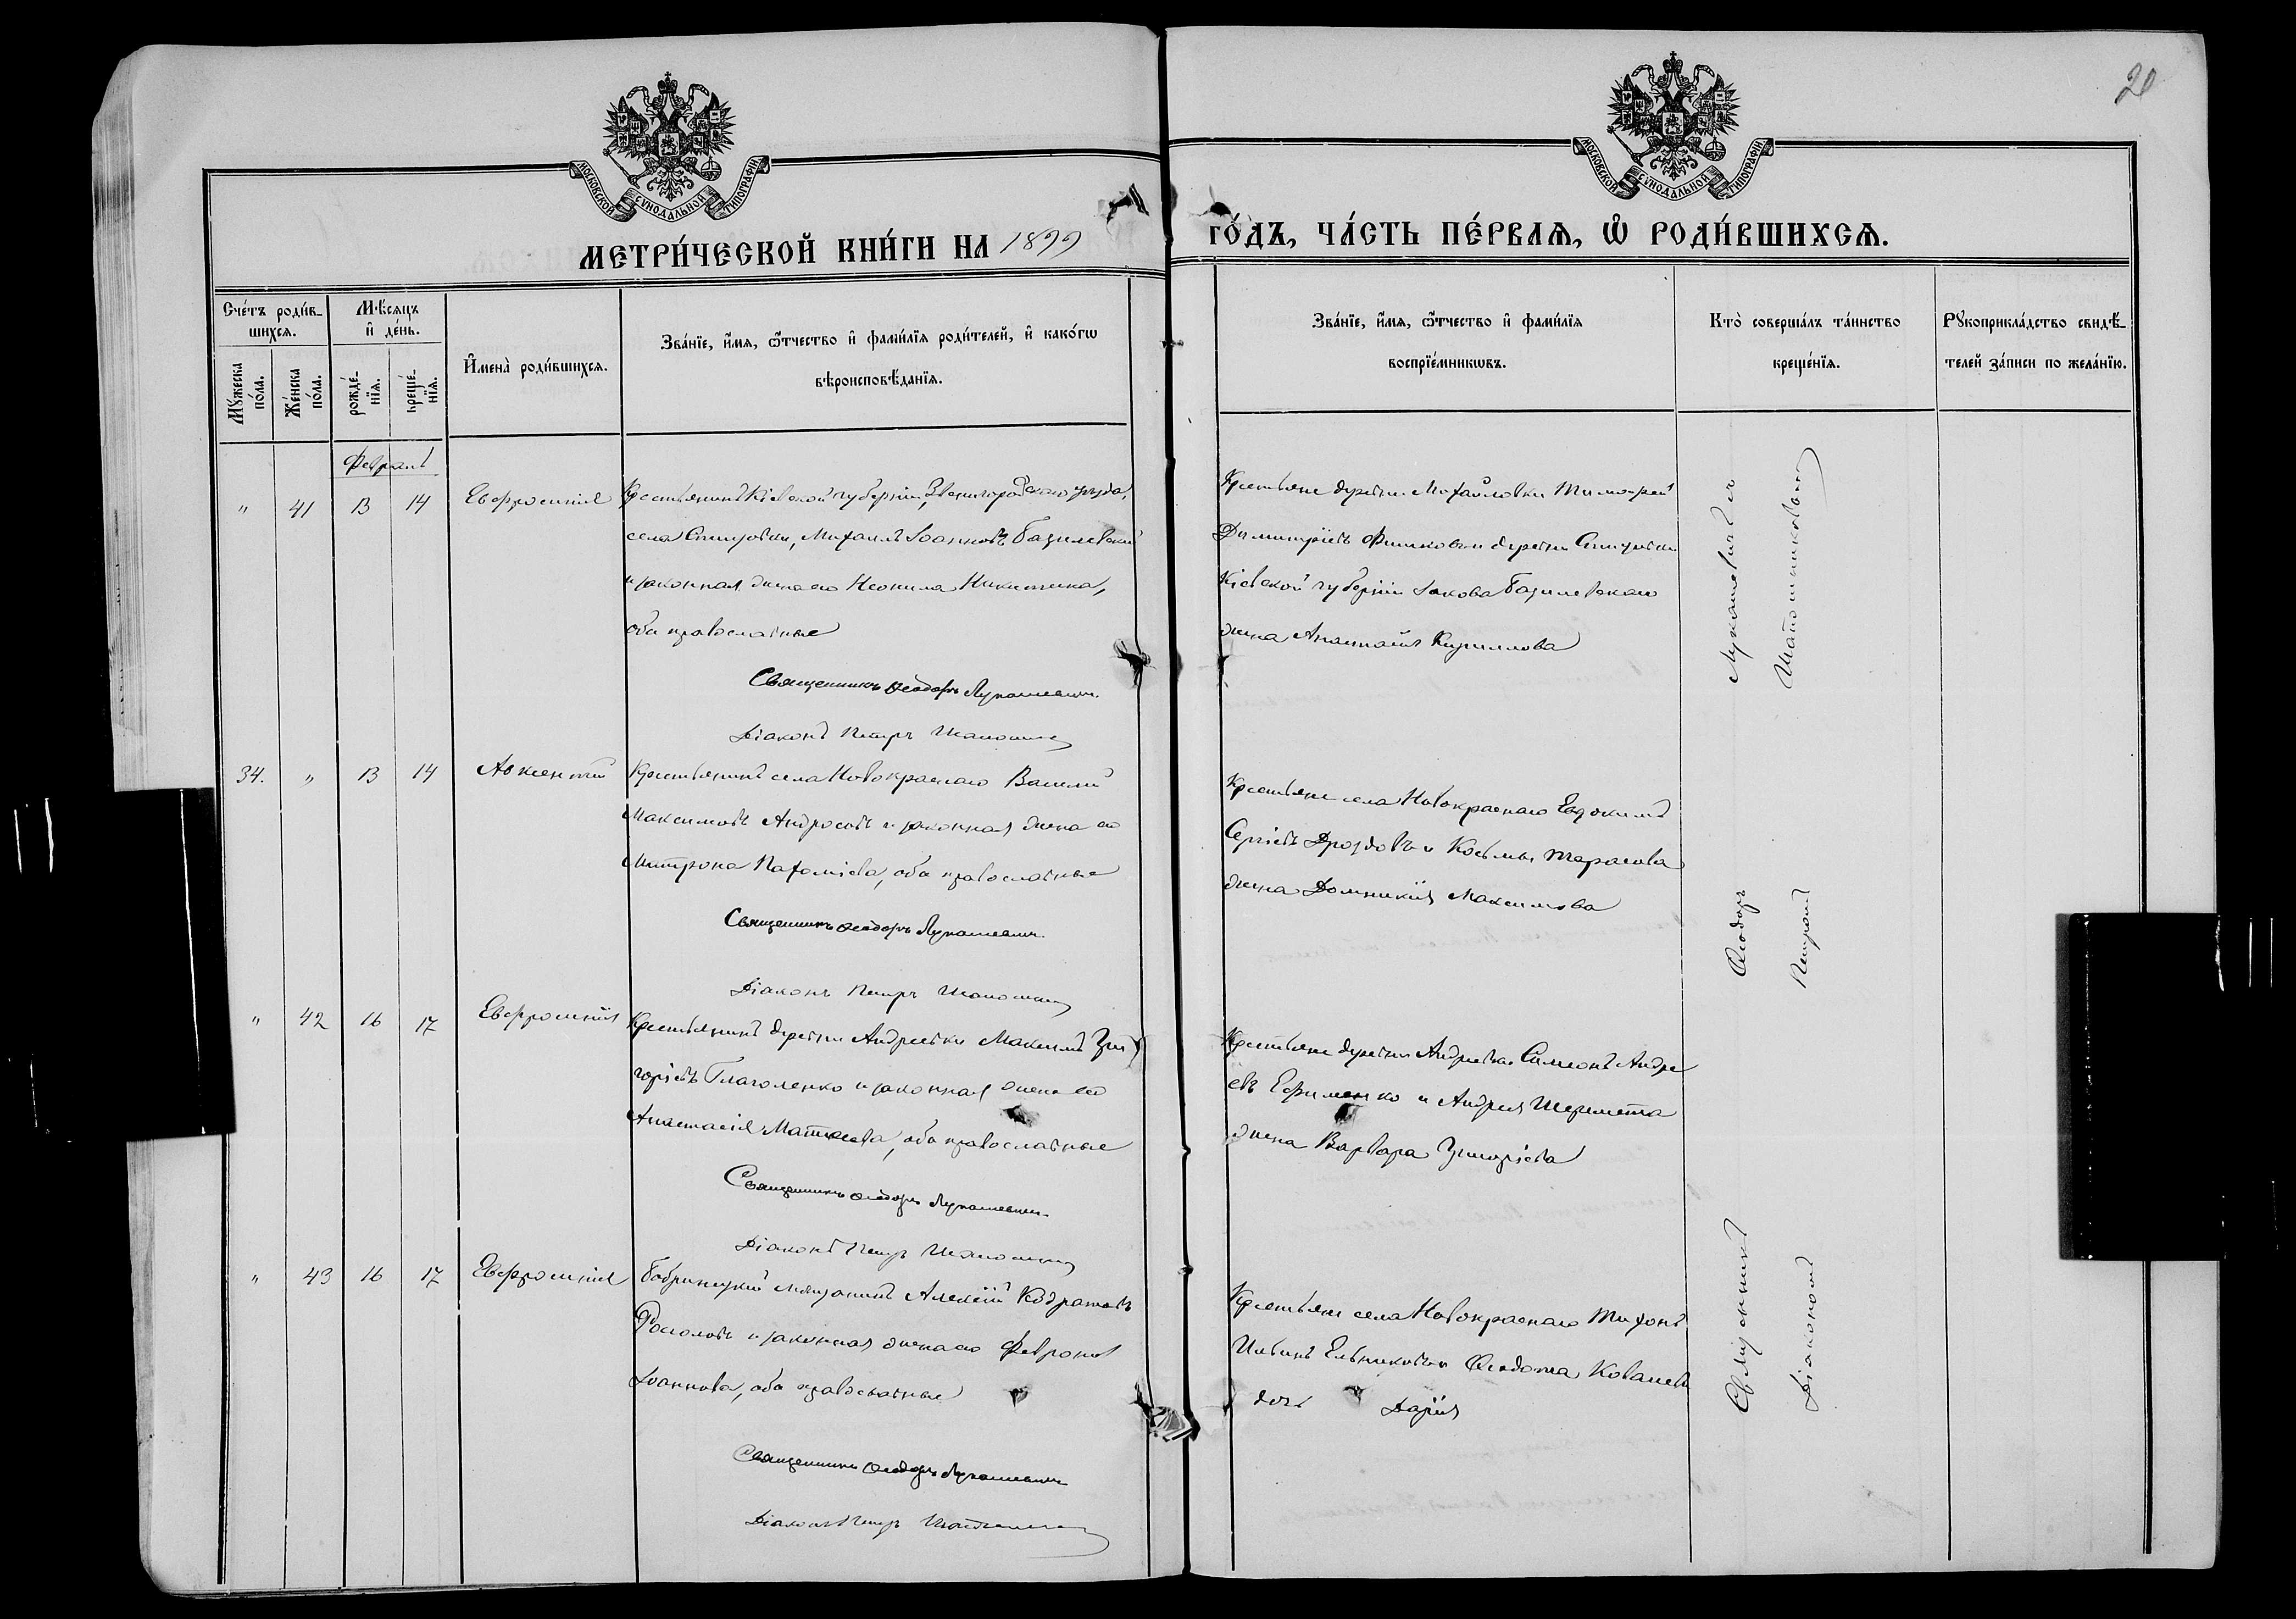 20
МОСКОВСКОЙ СѴНОДАЛЬНОЙ ТИПОГРАФІИ
МОСКОВСКОЙ СѴНОДАЛЬНОЙ ТИПОГРАФІИ
МЕТРИ́ЧЕСКОЙ КНИ́ГИ НА 1899
ГО́ДЪ, ЧА́СТЬ ПЕ́РВАѦ, Ѽ РОДИ́ВШИХСѦ.
Сче́тъ роди́в-
шихсѧ.
Мꙋжеска по́ла.
Же́нска по́ла.
Мѣ́сѧцъ
и҆ де́нь.
рожде́-
нїѧ.
креще́-
нїѧ.
И҆мена̀ роди́вшихсѧ.
Зва́нїе, и҆́мѧ, ѻ҆́тчество и҆ фами́лїѧ роди́телей, и҆ како́гѡ
вѣроисповѣ́данїѧ.
Зва́нїе, и҆́мѧ, ѻ҆́тчество и҆ фами́лїѧ
воспрїе́мникѡвъ.
Кто̀ соверша́лъ та́инство
креще́нїѧ.
Рꙋкоприкла́дство свидѣ́-
телей за́писи по жела́нїю.
Февраль
" 41 13 14 Евфросинія
Крестьянинъ Кіевской губерніи, Звенигородскаго уѣзда,
села Михаилъ Іоанновъ Базилевскій
и законная жена его Неонила Никитина,
оба православные
Священникъ Ѳеодоръ Лукашевичъ
Діаконъ Петръ
Крестьяне деревни Михайловки Тимофей
Димитріевъ деревни
Кіевской губерніи Іакова Базилевскаго
жена Анастасія Кириллова
34. " 13 14 Авксентій
Крестьянинъ села Новокраснаго Василій
Максимовъ Андросовъ и законная жена его
Митрона Пахоміева, оба православные
Священникъ Ѳеодоръ Лукашевичъ
Діаконъ Петръ
Крестьяне села Новокраснаго Евдокимъ
Сергіевъ Дроздовъ и Косьмы Тарасова
жена Домникія Максимова
" 42 16 17 Евфросинія
Крестьянинъ деревни Андреевки Максимъ Гри
горіевъ Глаголенко и законная жена его
Анастасія Матѳеева, оба православные
Священникъ Ѳеодоръ Лукашевичъ
Діаконъ Петръ
Крестьяне деревни Андреевки Симеонъ Андре
евъ Ефименко и Андрея Шеремета
жена Варвара Григоріева
" 43 16 17 Евфросинія
Бобринецкій мѣщанинъ Алексій Кодратовъ
и законная жена его Февронія
Іоаннова, оба православные
Священникъ Ѳеодоръ Лукашевичъ
Діаконъ Петръ
Крестьяне села Новокраснаго Тихонъ
Ильинъ и Ѳедота
дочь Дарія
Священникъ Ѳеодоръ Лукашевичъ съ
Діакономъ Петромъ